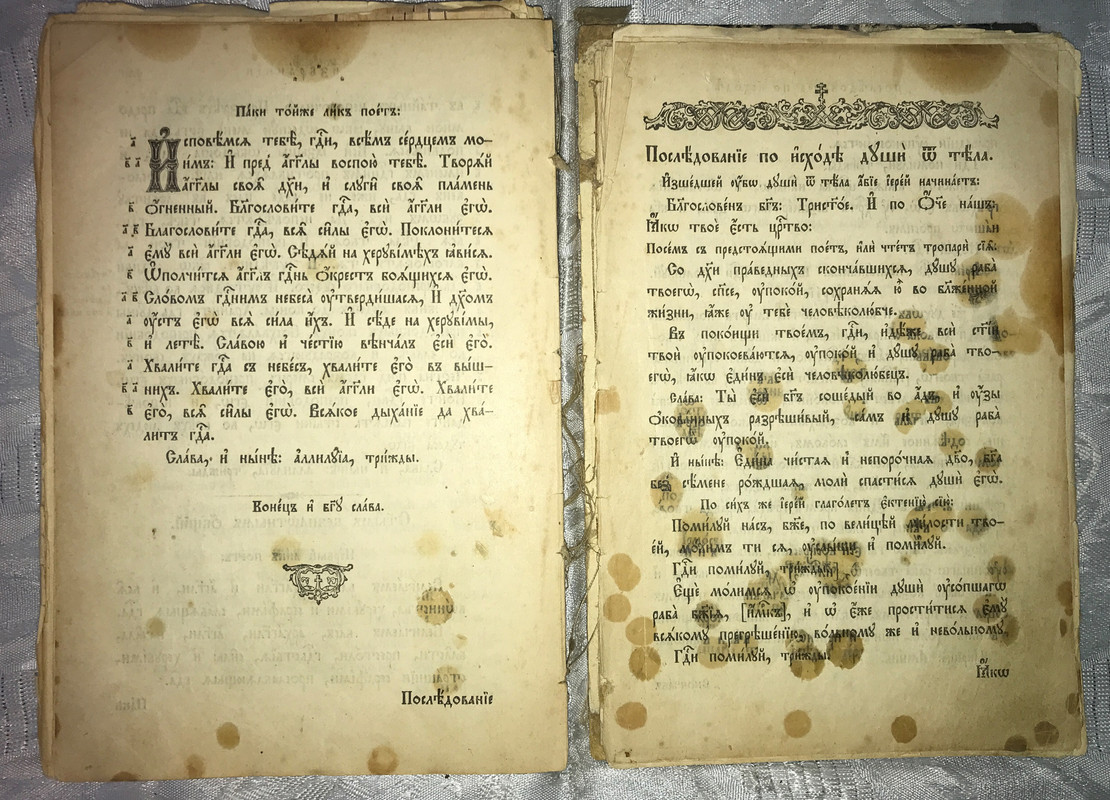 Па́ки то́йже ли́къ пое́тъ:
а҃ И҆сповѣ́мсѧ тебѣ̀, гдⷭ҇и, всѣ́мъ се́рдцемъ мо-
в҃ а҃ и́мъ: И҆ пред̾ а҆́гг҃лы воспою̀ тебѣ̀. Творѧ́й
а҆́гг҃лы своѧ̑ дх҃и, и҆ слꙋги̑ своѧ̑ пла́мень
в҃ ѻ҆́гненный. Бл҃гослови́те гдⷭ҇а, всѝ а҆́гг҃ли є҆гѡ̀.
Благослови́те гдⷭ҇а, всѧ̑ си̑лы є҆гѡ̀. Поклони́тесѧ
а҃ є҆мꙋ̀ всѝ а҆́гг҃ли є҆гѡ̀. Сѣдѧ́й на херꙋві́мѣхъ ꙗ҆ви́сѧ.
в҃ Ѡ҆полчи́тсѧ а҆́гг҃лъ гдⷭ҇нь ѻ҆́крестъ боѧ́щихсѧ є҆гѡ̀.
а҃ в҃ Сло́вомъ гдⷭ҇нимъ небеса̀ ᲂу҆тверди́шасѧ, И҆ дх҃омъ
а҃ ᲂу҆́стъ є҆гѡ̀ всѧ̀ си́ла и҆́хъ. И҆ сѣ́де на херꙋві́мы,
в҃ и҆ летѣ̀. Сла́вою и҆ че́стїю вѣнча́лъ є҆сѝ є҆го̀.
а҃ Хвали́те гдⷭ҇а съ небе́съ, хвали́те є҆го̀ въ вы́ш-
в҃ а҃ нихъ. Хвали́те є҆го̀, всѝ а҆́гг҃ли є҆гѡ̀. Хвали́те
в҃ є҆го̀, всѧ̑ си̑лы є҆гѡ̀. Всѧ́кое дыха́нїе да хва́-
литъ гдⷭ҇а.
Сла́ва, и҆ ны́нѣ: а҆ллилꙋ́їа, три́жды.
Коне́цъ и҆ бг҃ꙋ сла́ва.
Послѣ́дованїе
Послѣ́дованїе по и҆схо́дѣ дꙋшѝ ѿ тѣ́ла.
И҆зше́дшей ᲂу҆̀бѡ дꙋшѝ ѿ тѣ́ла а҆́бїе і҆ере́й начина́етъ:
Бл҃гослове́нъ бг҃ъ: Трист҃о́е. И҆ по Ѻ҆́ч҃е на́шъ:
Ꙗ҆́кѡ твоѐ є҆́сть црⷭ҇тво:
Посе́мъ съ предстоѧ́щими пое́тъ, и҆лѝ чте́тъ тропарѝ сїѧ̑:
Со дх҃и пра́ведныхъ сконча́вшихсѧ, дꙋ́шꙋ раба̀
твоегѡ̀, сп҃се, ᲂу҆поко́й, сохранѧ́ѧ ю҆̀ во бл҃же́нной
жи́зни, ꙗ҆́же ᲂу҆ тебѐ человѣколю́бче.
Въ поко́ищи твое́мъ, гдⷭ҇и, и҆дѣ́же всѝ ст҃і́и
твоѝ ᲂу҆покоева́ютсѧ, ᲂу҆поко́й и҆ дꙋ́шꙋ раба̀ тво-
егѡ̀, ꙗ҆́кѡ є҆ди́нъ є҆сѝ человѣколю́бецъ.
Сла́ва: Ты̀ є҆сѝ бг҃ъ соше́дый во а҆́дъ, и҆ ᲂу҆́зы
ѻ҆кова́нныхъ разрѣши́вый, са́мъ и҆ дꙋ́шꙋ раба̀
твоегѡ̀ ᲂу҆поко́й.
И҆ ны́нѣ: Є҆ди́на чи́стаѧ и҆ непоро́чнаѧ дв҃о, бг҃а
без̾ сѣ́мене ро́ждшаѧ, молѝ спасти́сѧ дꙋшѝ є҆гѡ̀.
По си́хъ же і҆ере́й глаго́летъ є҆ктенїю̀ сїю̀:
Поми́лꙋй на́съ, бж҃е, по вели́цѣй ми́лости тво-
е́й, мо́лимъ ти сѧ, ᲂу҆слы́ши и҆ поми́лꙋй.
Гдⷭ҇и поми́лꙋй, три́жды.
Є҆щѐ мо́лимсѧ ѡ҆ ᲂу҆покое́нїи дꙋшѝ ᲂу҆со́пшагѡ
раба̀ бж҃їѧ, [и҆́мⷬ҇къ], и҆ ѡ҆ є҆́же прости́тисѧ є҆мꙋ̀
всѧ́комꙋ прегрѣше́нїю, во́льномꙋ же и҆ нево́льномꙋ.
Гдⷭ҇и поми́лꙋй, три́жды.
Ꙗ҆́кѡ